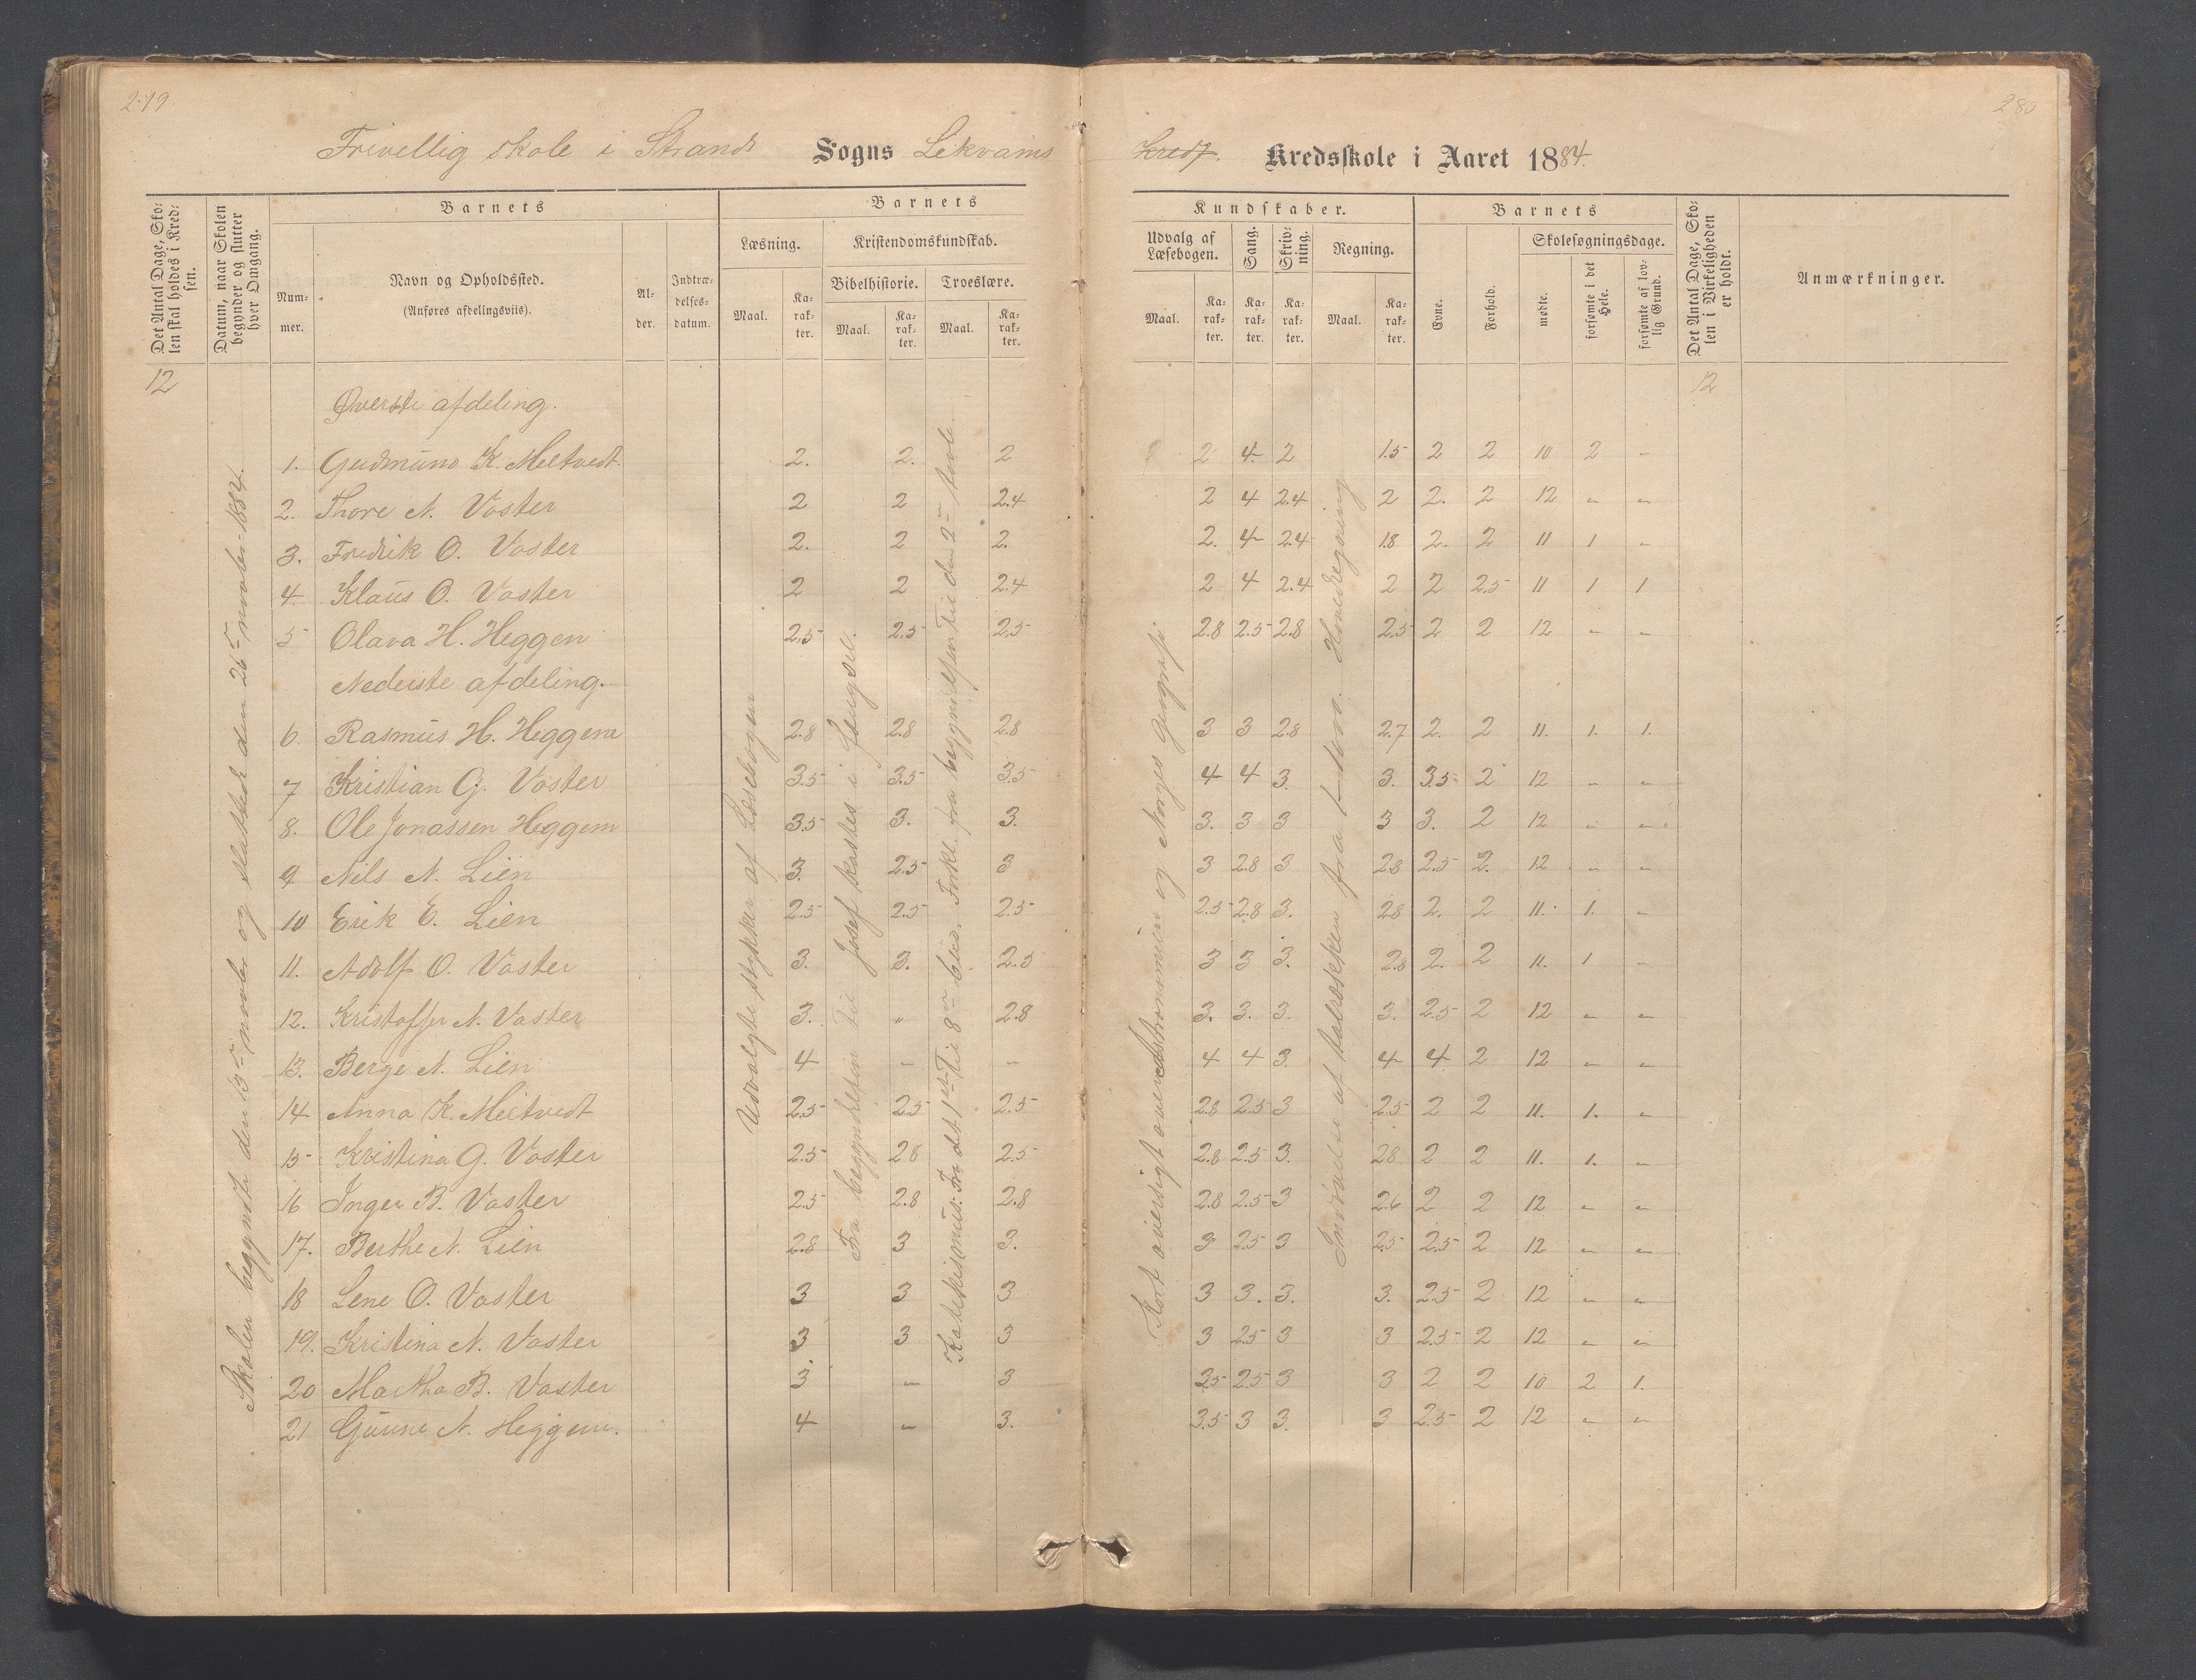 279
280
Frivellig skole i Strands Sogns Lekvams
Kreds. Kredsskole i Aaret 1884.
Det Antal Dage, Skolen skal holdes i Kredsen.
Datum, naar Skolen begynder og slutter hver Omgang.
Barnets
Nummer.
Navn og Opholdssted.
(Anføres afdelingsviis).
Alder.
Indtrædelsesdatum.
Barnets
Læsning.
Maal.
Karakter.
Kristendomskundskab.
Bibelhistorie.
Maal.
Karakter.
Troeslære.
Maal.
Karakter.
Kundskaber.
Udvalg af Læsebogen.
Maal.
Karakter.
Sang.
Karakter.
Skrivning.
Karakter.
Regning.
Maal.
Karakter.
Barnets
Evne.
Forhold.
Skolesøgningsdage.
mødte.
forsømte i det Hele.
forsømte af lovlig Grund.
Det Antal Dage, Skolen i Virkeligheden er holdt.
Anmærkninger.
12
12
Skolen begynte den 13de novbr. og sluttede den 26de novbr. 1884.
Udvalgte stykker af Læsebogen
Fra begyndelsen til Josef kastes i fængsel.
Katekismus: Fra det 1ste til 8de bud. Forkl. fra begyndelsen til den 2den tavle.
Kort oversigt over Astronomien og Norges geografi.
Indøvelse af talrækken fra 1-1000. Hovedregning
Øverste afdeling.
1. Gudmund K. Meltvedt. 2. 2. 2 2 4 2 1.5 2 2 10 2 "
2. Thore N. Voster 2 2 2.4 2 4 2.4 2 2. 2 12 " "
3. Fredrik O. Voster 2. 2 2. 2. 4 2.4 1.8 2. 2 11 1 "
4. Klaus O. Voster 2 2 2.4 2 4 2.4 2 2 2.5 11 1 1
5 Olava H. Heggen 2.5 2.5 2.5 2.8 2.5 2.8 2.5 2 2 12 " "
Nederste afdeling.
6. Rasmus H. Heggem 2.8 2.8 2.8 3 3 2.8 2.7 2. 2 11. 1. 1.
7 Kristian G. Voster 3.5 3.5 3.5 4 4 3. 3. 3.5 2 12 " "
8. Ole Jonassen Heggem 3.5 3. 3. 3. 3 3 3 3. 2 12 " "
9 Nils N. Lien 3. 2.5 3 3 2.8 3 2.8 2.5 2. 12 " "
10 Erik E. Lien 2.5 2.5 2.5 2.5 2.8 3. 2.8 2. 2 11. 1. "
11. Adolf O. Voster 3. 3. 2.5 3 3 3. 2.8 2. 2 11. 1 "
12. Kristoffer N. Voster 3. " 2.8 3. 3. 3. 3. 2.5 2 12 " "
13. Berge N. Lien 4 " " 4 4 3. 4 4 2 12 " "
14 Anna K. Meltvedt 2.5 2.5 2.5 2.8 2.5 3 2.5 2 2 11. 1. "
15 Kristina G. Voster 2.5 2.8 2.5 2.8 2.5 3. 2.8 2 2 11. 1. "
16 Inger B. Voster 2.5 2.8 2.8 2.8 2.5 3 2.6 2 2 12 " "
17. Berthe N. Lien 2.8 3 3. 3 2.5 3 2.5 2.5 2 12 " "
18 Lene O. Voster 3 3 3 3 3. 3. 3. 2.5 2 12 " "
19. Kristina N. Voster 3 3 3 3 2.5 3 3 2.5 2 12 " "
20 Martha B. Voster 3 " 3 3.5 2.5 3 3 2 2 10 2 1.
21 Gunne N. Heggem. 4 " 3. 3.5 3 3. 3 2.5 2 12 " "